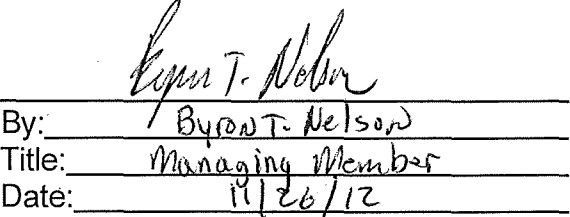 Byron T. Nelson
By: Byron T. Nelson
Title: Managing Member
Date: 11/26/12